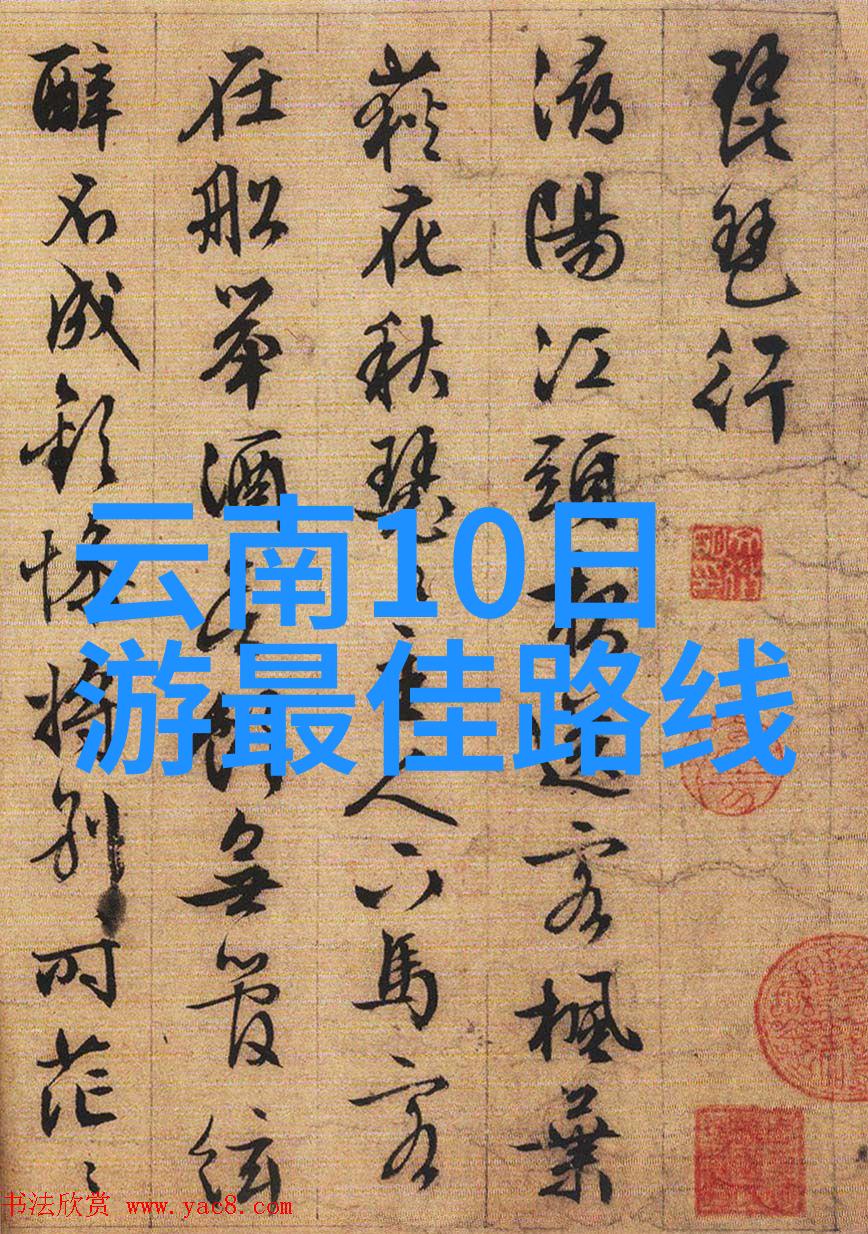 琵琶行
潯陽江頭夜送客楓葉
荻花秋瑟〻主人下馬客
在船舉酒欲飲無管絃
醉不成歡慘將別〻時茫〻
云南10日
游最佳路线
书法欣赏 www.yac8.com